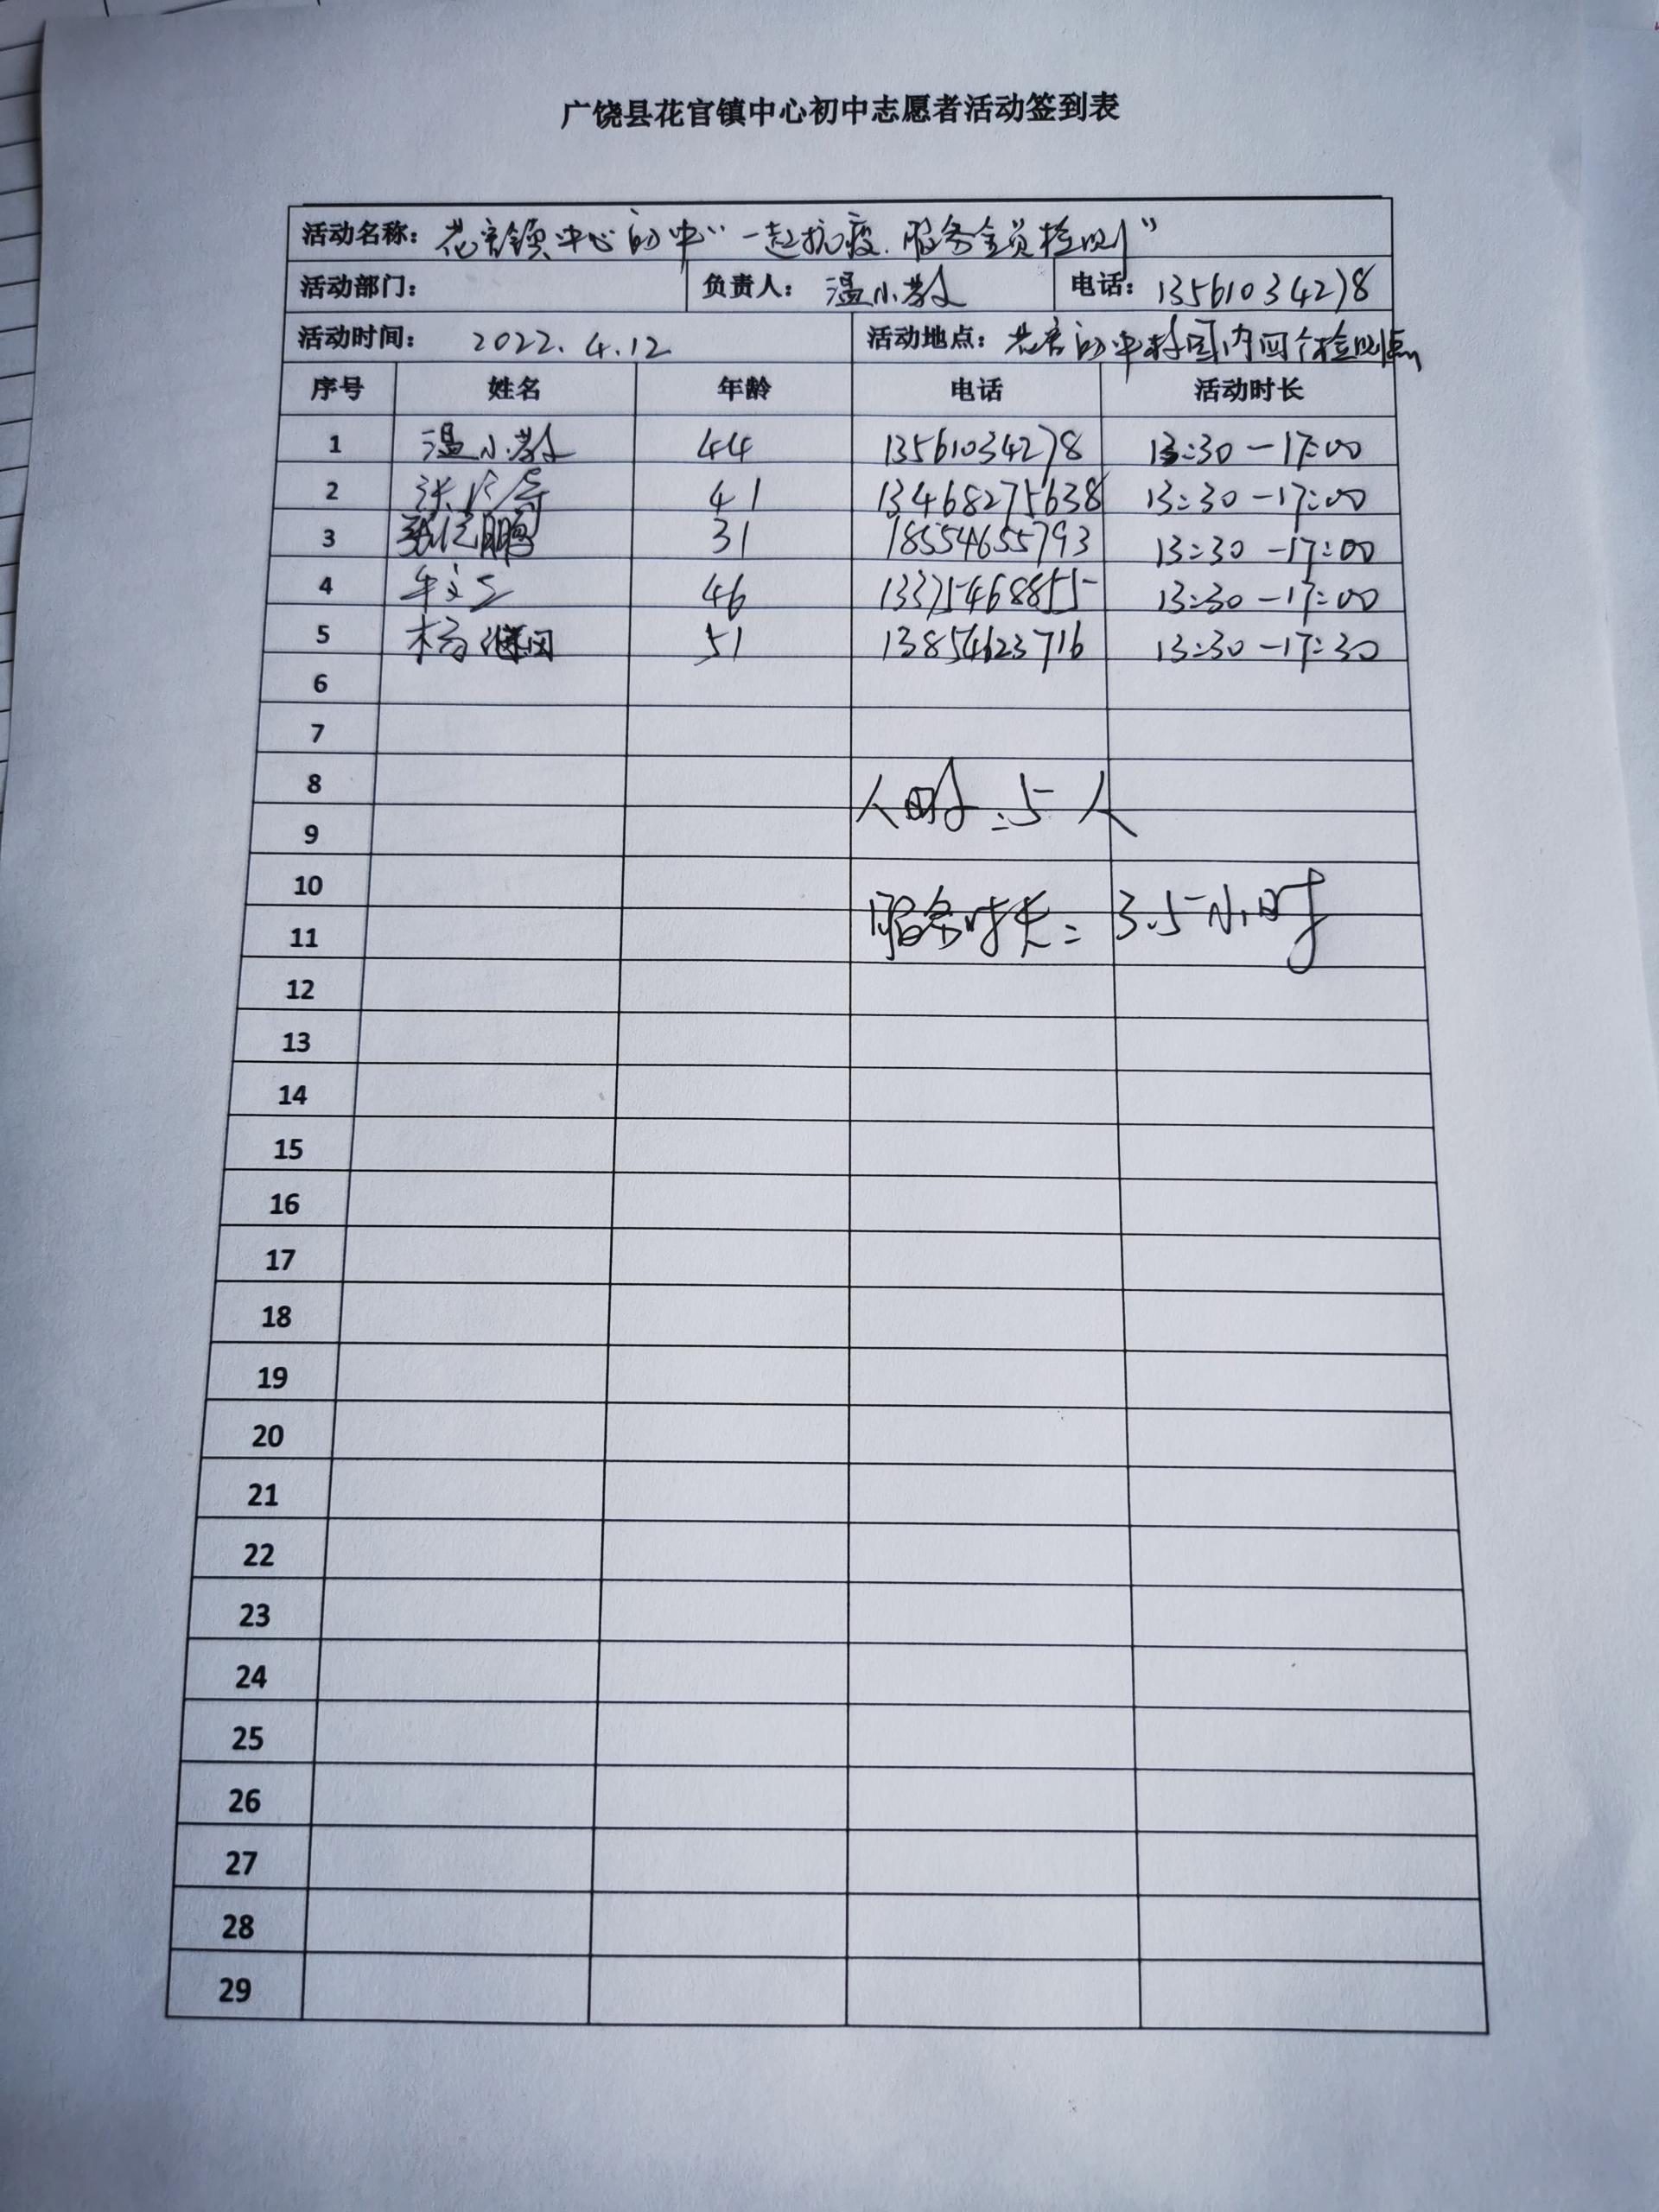 广饶县花官镇中心初中志愿者活动签到表
活动名称：花官镇中心初中“一起抗疫.服务全员检测”
活动部门： 负责人：温小教 电话：13561034278
活动时间： 2022.4.12 活动地点：花官初中校园内四个检测点
序号 姓名 年龄 电话 活动时长
1 温小教 44 13561034278 13:30-17:00
2 张 41 13468275638 13:30-17:00
3 鹏 31 18554655793 13:30-17:00
4 46 13375468855 13:30-17:00
5 杨 51 13854623716 13:30-17:30
6
7
8 人 :5人
9
10 服务时长：3.5小时
11
12
13
14
15
16
17
18
19
20
21
22
23
24
25
26
27
28
29